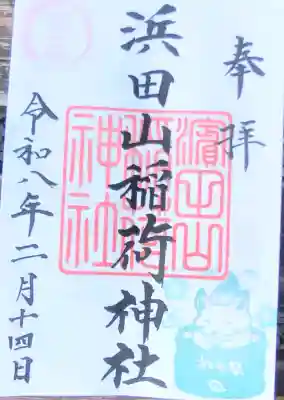 奉拝
浜田山稲荷神社
令和八年二月十四日
濱田山
稲荷
神社